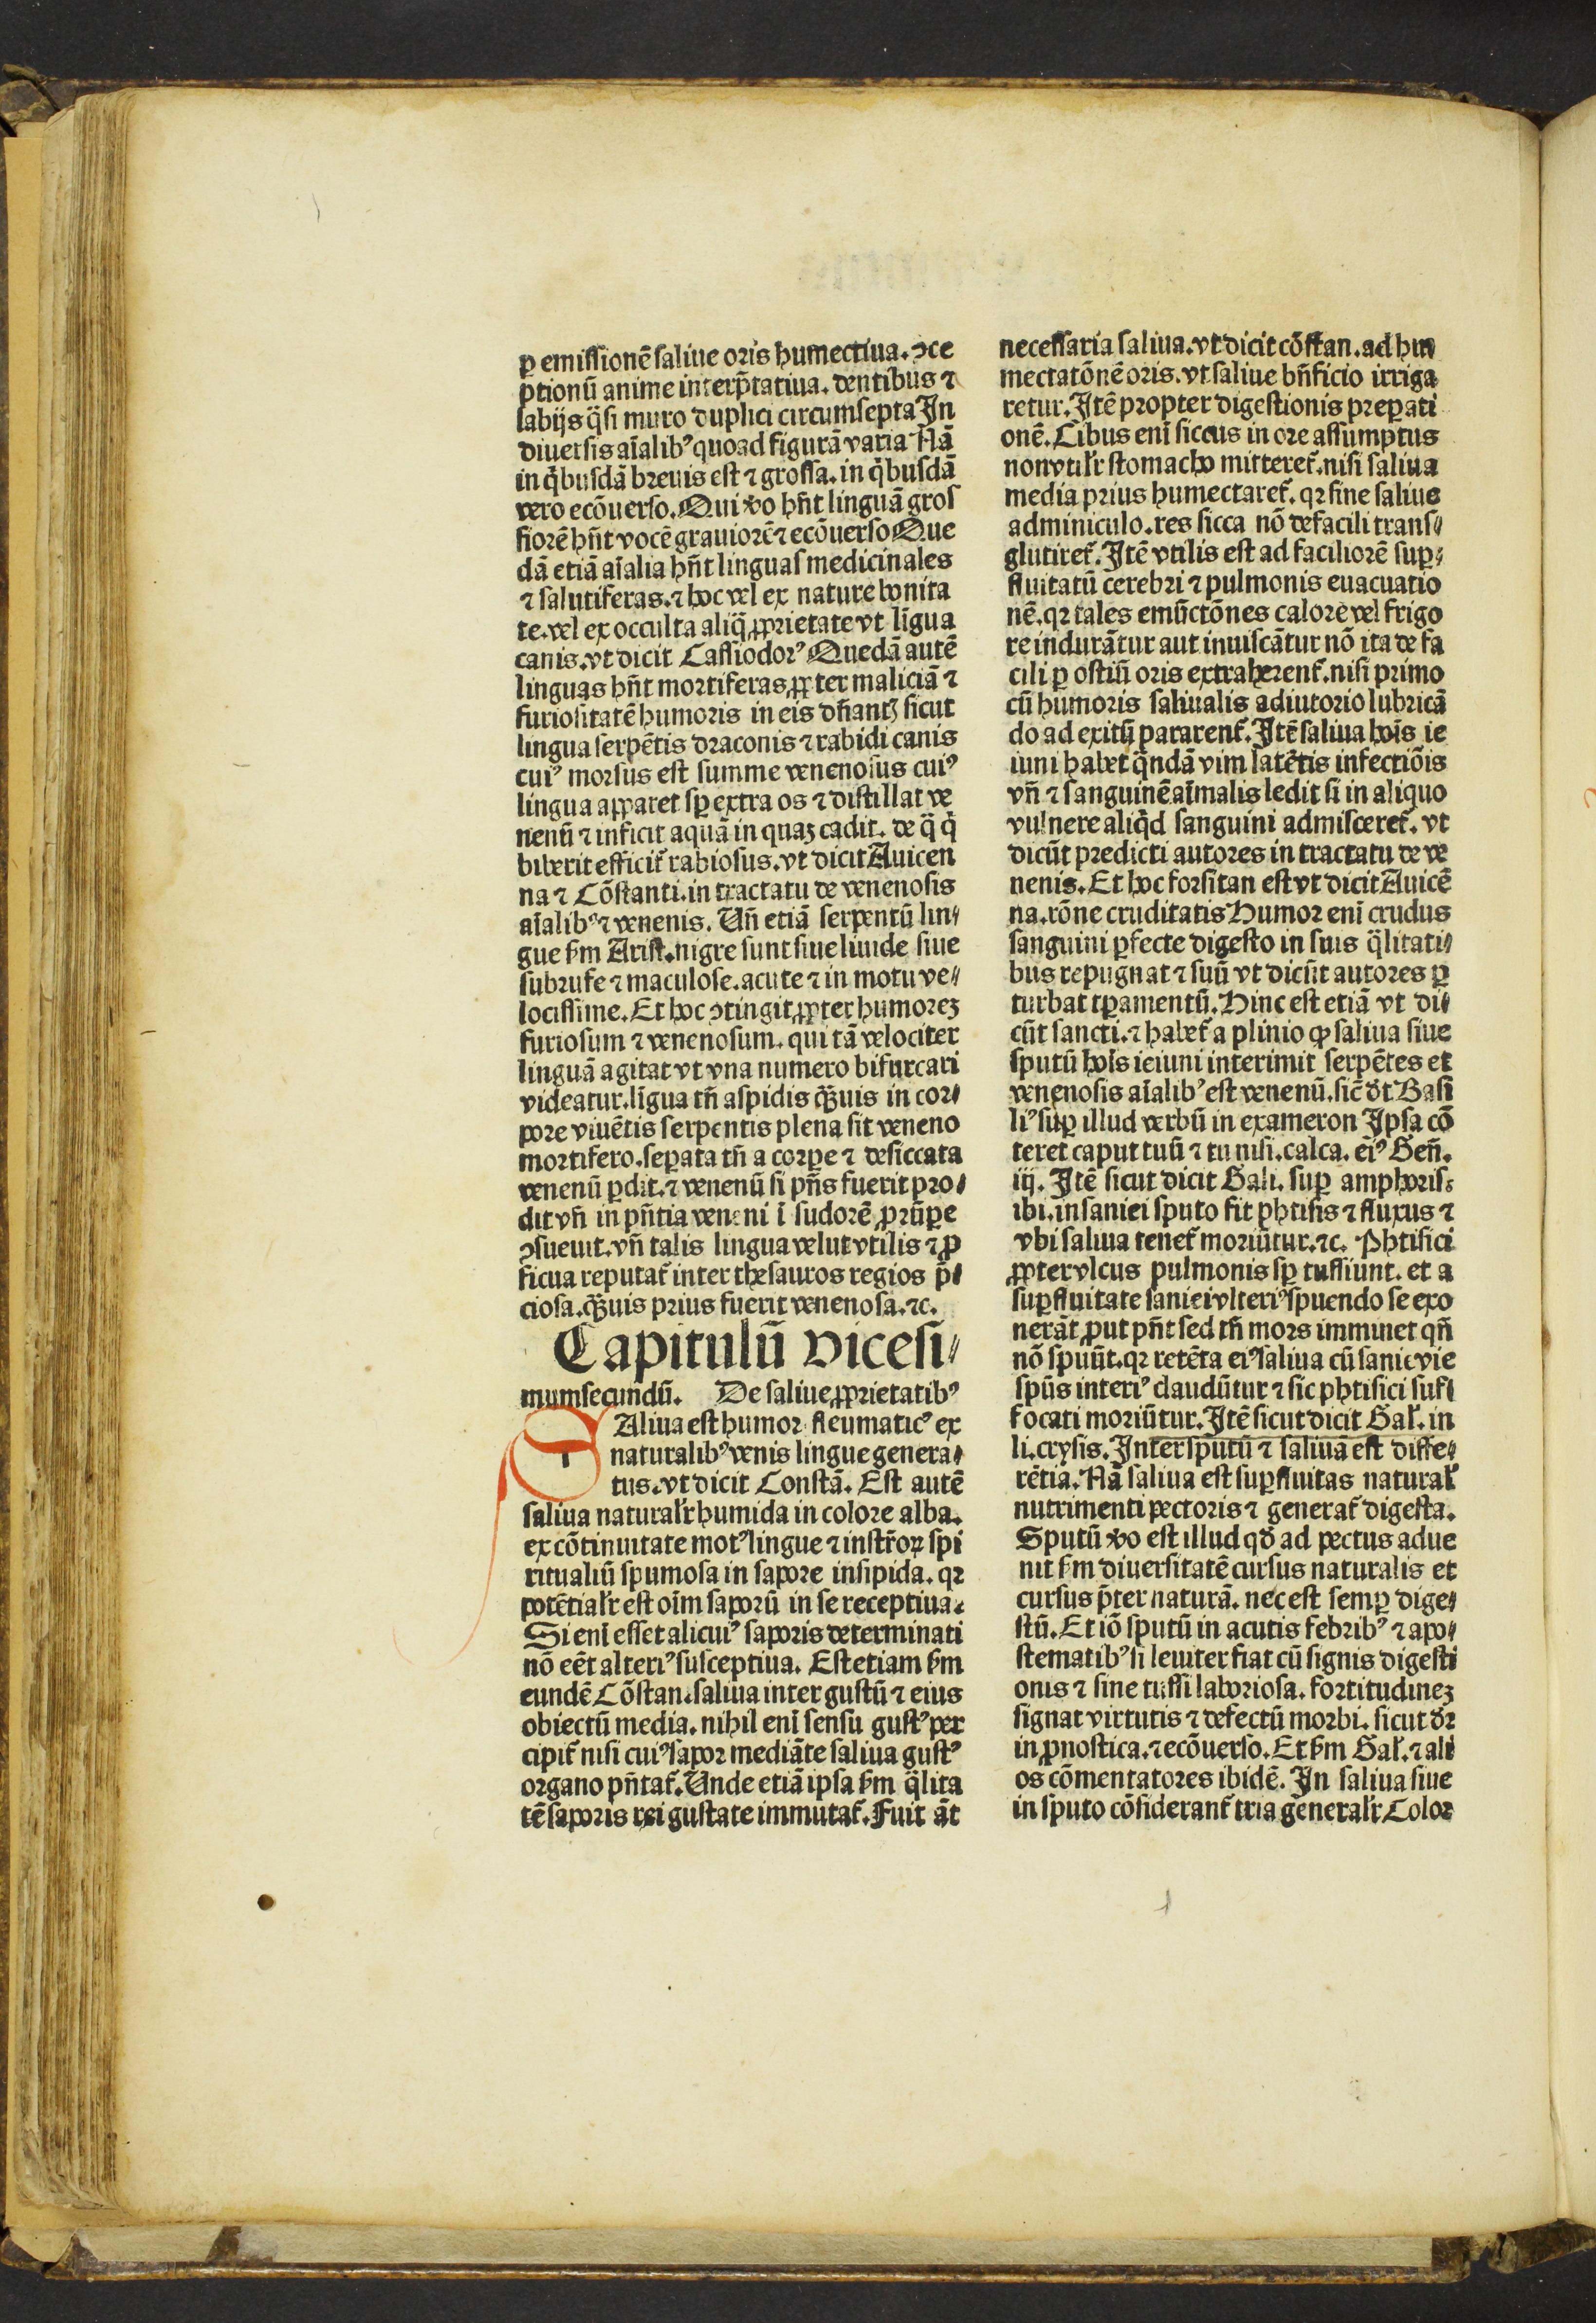 ꝑ emiſſionē ſaliue oris humectiua. ɔce
ptionū anime interp̄tatiua. dentibus ⁊
labijs q̄ſi muro duplici circumſepta In
diuerſis aīalibꝰ quoad figurā varia Nā
in q̄buſdā breuis eſt ⁊ groſſa. in q̄buſdā
vero ecōuerſo. Qui v̄o hn̄t linguā groſ
ſiorē hn̄t vocē grauiorē ⁊ ecōuerſo Que
dā etiā aīalia hn̄t linguaſ medicinales
⁊ ſalutiferas. ⁊ hoc vel ex nature bonita
te. vel ex occulta aliq̄ ꝓprietate vt līgua
canis. vt dicit Caſſiodorꝰ Quedā autē
linguas hn̄t mortiferas ꝓpter maliciā ⁊
furioſitatē humoris in eis dn̄antꝫ ſicut
lingua ſerpētis draconis ⁊ rabidi canis
cuiꝰ morſus eſt ſumme venenoſus cuiꝰ
lingua apparet ſꝑ extra os ⁊ diſtillat ve
nenū ⁊ inficit aquā in quaꝫ cadit. de q̄ q̄
biberit efficit̄ rabioſus. vt dicit Auicen
na ⁊ Cōſtanti. in tractatu de venenoſis
aīalibꝰ ⁊ venenis. Vn̄ etiā ſerpentū lin⸗
gue ẜm Ariſt. nigre ſunt ſiue liuide ſiue
ſubrufe ⁊ maculoſe. acute ⁊ in motu ve⸗
lociſſime. Et hoc ɔtingit ꝓpter humoreꝫ
furioſum ⁊ venenoſum. qui tā velociter
linguā agitat vt vna numero bifurcari
videatur. līgua tn̄ aſpidis qͣꝫuis in cor⸗
pore viuētis ſerpentis plena ſit veneno
mortifero. ſeparata tn̄ a corꝑe ⁊ deſiccata
venenū ꝑdit. ⁊ venenū ſi pn̄s fuerit pro⸗
dit vn̄ in pn̄tia veneni ī ſudorē ꝓrūꝑe
ɔſueuit. vn̄ talis lingua velut vtilis ⁊ ꝓ
ficua reputat̄ inter theſauros regios p̄⸗
cioſa. qͣꝫuis prius fuerit venenoſa. ⁊c.
Capitulū viceſi⸗
mumſecundū. De ſaliue ꝓprietatibꝰ
Aliua eſt humor fleumaticꝰ ex
naturalibꝰ venis lingue genera⸗
tus. vt dicit Conſtā. Eſt autē
ſaliua naturalr̄ humida in colore alba.
ex cōtinuitate motꝰ lingue ⁊ inſtr̄oꝝ ſpi
ritualiū ſpumoſa in ſapore inſipida. qꝛ
potētialr̄ eſt oīm ſaporū in ſe receptiua.
Si enī eſſet alicuiꝰ ſaporis determinati
nō eēt alteriꝰ ſuſceptiua. Eſt etiam ẜm
eundē Cōſtan. ſaliua inter guſtū ⁊ eius
obiectū media. nihil enī ſenſu guſtꝰ per
cipit̄ niſi cuiꝰ ſapor mediāte ſaliua guſtꝰ
organo pn̄tat̄. Unde etiā ipſa ẜm q̄lita
tē ſaporis rei guſtate immutat̄. Fuit āt
neceſſaria ſaliua. vt dicit cōſtan. ad hu⸗
mectatōnē oris. vt ſaliue bn̄ficio irriga
retur. Itē propter digeſtionis preparati
onē. Cibus enī ſiccus in ore aſſumptus
non vtilr̄ ſtomacho mitteret̄. niſi ſaliua
media prius humectaret̄. qꝛ ſine ſaliue
adminiculo. res ſicca nō defacili tranſ⸗
glutiret̄. Itē vtilis eſt ad faciliorē ſuꝑ⸗
fluitatū cerebri ⁊ pulmonis euacuatio
nē. qꝛ tales emūctōnes calore vel frigo
re indurātur aut inuiſcātur nō ita de fa
cili ꝑ oſtiū oris extraherent̄. niſi primo
cū humoris ſaliualis adiutorio lubricā
do ad exitū pararent̄. Itē ſaliua hoīs ie
iuni habet q̄ndā vim latētis infectiōis
vn̄ ⁊ ſanguinē aīmalis ledit ſi in aliquo
vulnere aliq̄d ſanguini admiſceret̄. vt
dicūt predicti autores in tractatu de ve
nenis. Et hoc forſitan eſt vt dicit Auicē
na. rōne cruditatis Humor enī crudus
ſanguini ꝑfecte digeſto in ſuis q̄litati⸗
bus repugnat ⁊ ſuū vt dicūt autores ꝑ
turbat tꝑamentū. Hinc eſt etiā vt di⸗
cūt ſancti. ⁊ habet̄ a plinio ꝙ ſaliua ſiue
ſputū hoīs ieiuni interimit ſerpētes et
venenoſis aīalibꝰ eſt venenū. ſic̄ d̄t Baſi
liꝰ ſuꝑ illud verbū in exameron Ipſa cō
teret caput tuū ⁊ tu niſi. calca. eiꝰ Gen̄.
iij. Itē ſicut dicit Gali. ſuꝑ amphoriſ.
ibi. in ſaniei ſputo fit phtiſis ⁊ fluxus ⁊
vbi ſaliua tenet̄ moriūtur. ⁊c. Phtiſici
ꝓpter vlcus pulmonis ſꝑ tuſſiunt. et a
ſuꝑfluitate ſaniei vlteriꝰ ſpuendo ſe exo
nerāt ꝓut pn̄t ſed tn̄ mors imminet qn̄
nō ſpuūt. qꝛ retēta eiꝰ ſaliua cū ſanie vie
ſpūs interiꝰ claudūtur ⁊ ſic phtiſici ſuf⸗
focati moriūtur. Itē ſicut dicit Gal̄. in
li. cryſis. Inter ſputū ⁊ ſaliuā eſt diffe⸗
rētia. Nā ſaliua eſt ſuꝑfluitas natural̄
nutrimenti pectoris ⁊ generat̄ digeſta.
Sputū v̄o eſt illud qd̄ ad pectus adue
nit ẜm diuerſitatē curſus naturalis et
curſus p̄ter naturā. nec eſt ſemꝑ dige⸗
ſtū. Et iō ſputū in acutis febribꝰ ⁊ apo⸗
ſtematibꝰ ſi leuiter fiat cū ſignis digeſti
onis ⁊ ſine tuſſi laborioſa. fortitudineꝫ
ſignat virtutis ⁊ defectū morbi. ſicut dr̄
in ꝓnoſtica. ⁊ ecōuerſo. Et ẜm Gal̄. ⁊ ali
os cōmentatores ibidē. In ſaliua ſiue
in ſputo cōſiderant̄ tria generalr̄ Color